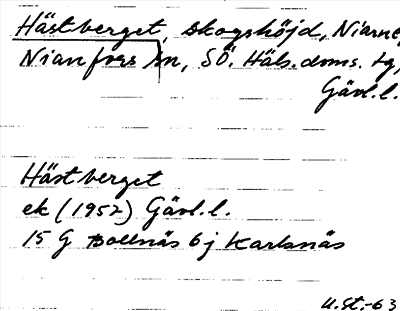 Hästberget, skogshöjd, Nianne,
Nianfors sn, SÖ. Häls.doms. tg,
Gävl.l.
Hästberget
ek (1952) Gävl.l.
15 G Bollnäs 6j Karlsnäs
U.St.-63